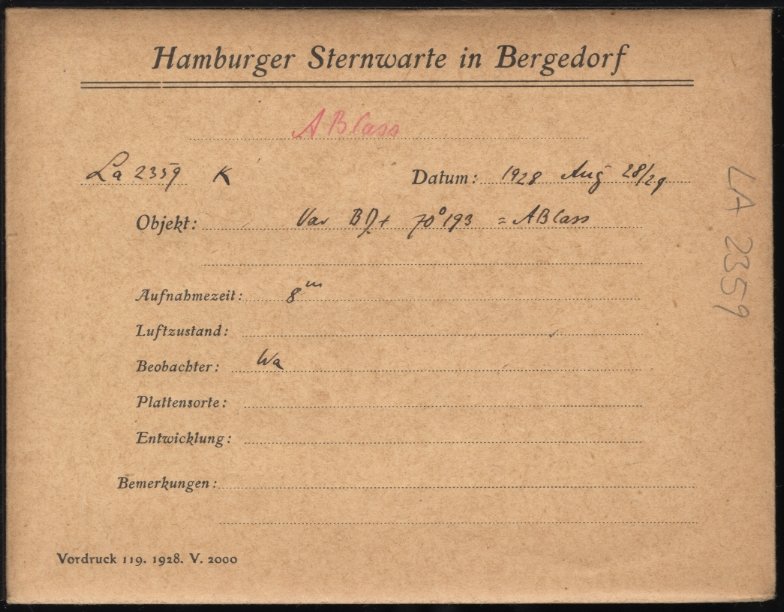 Hamburger Sternwarte in Bergedorf
ABCass
La 2359 K Datum: 1928 Aug 28/29
Objekt: Var BD+ 70°193 = ABCass
Aufnahmezeit: 8ᵐ
Luftzustand:
Beobachter: Wa
Plattensorte:
Entwicklung:
Bemerkungen:
Vordruck 119. 1928. V. 2000
LA 2359